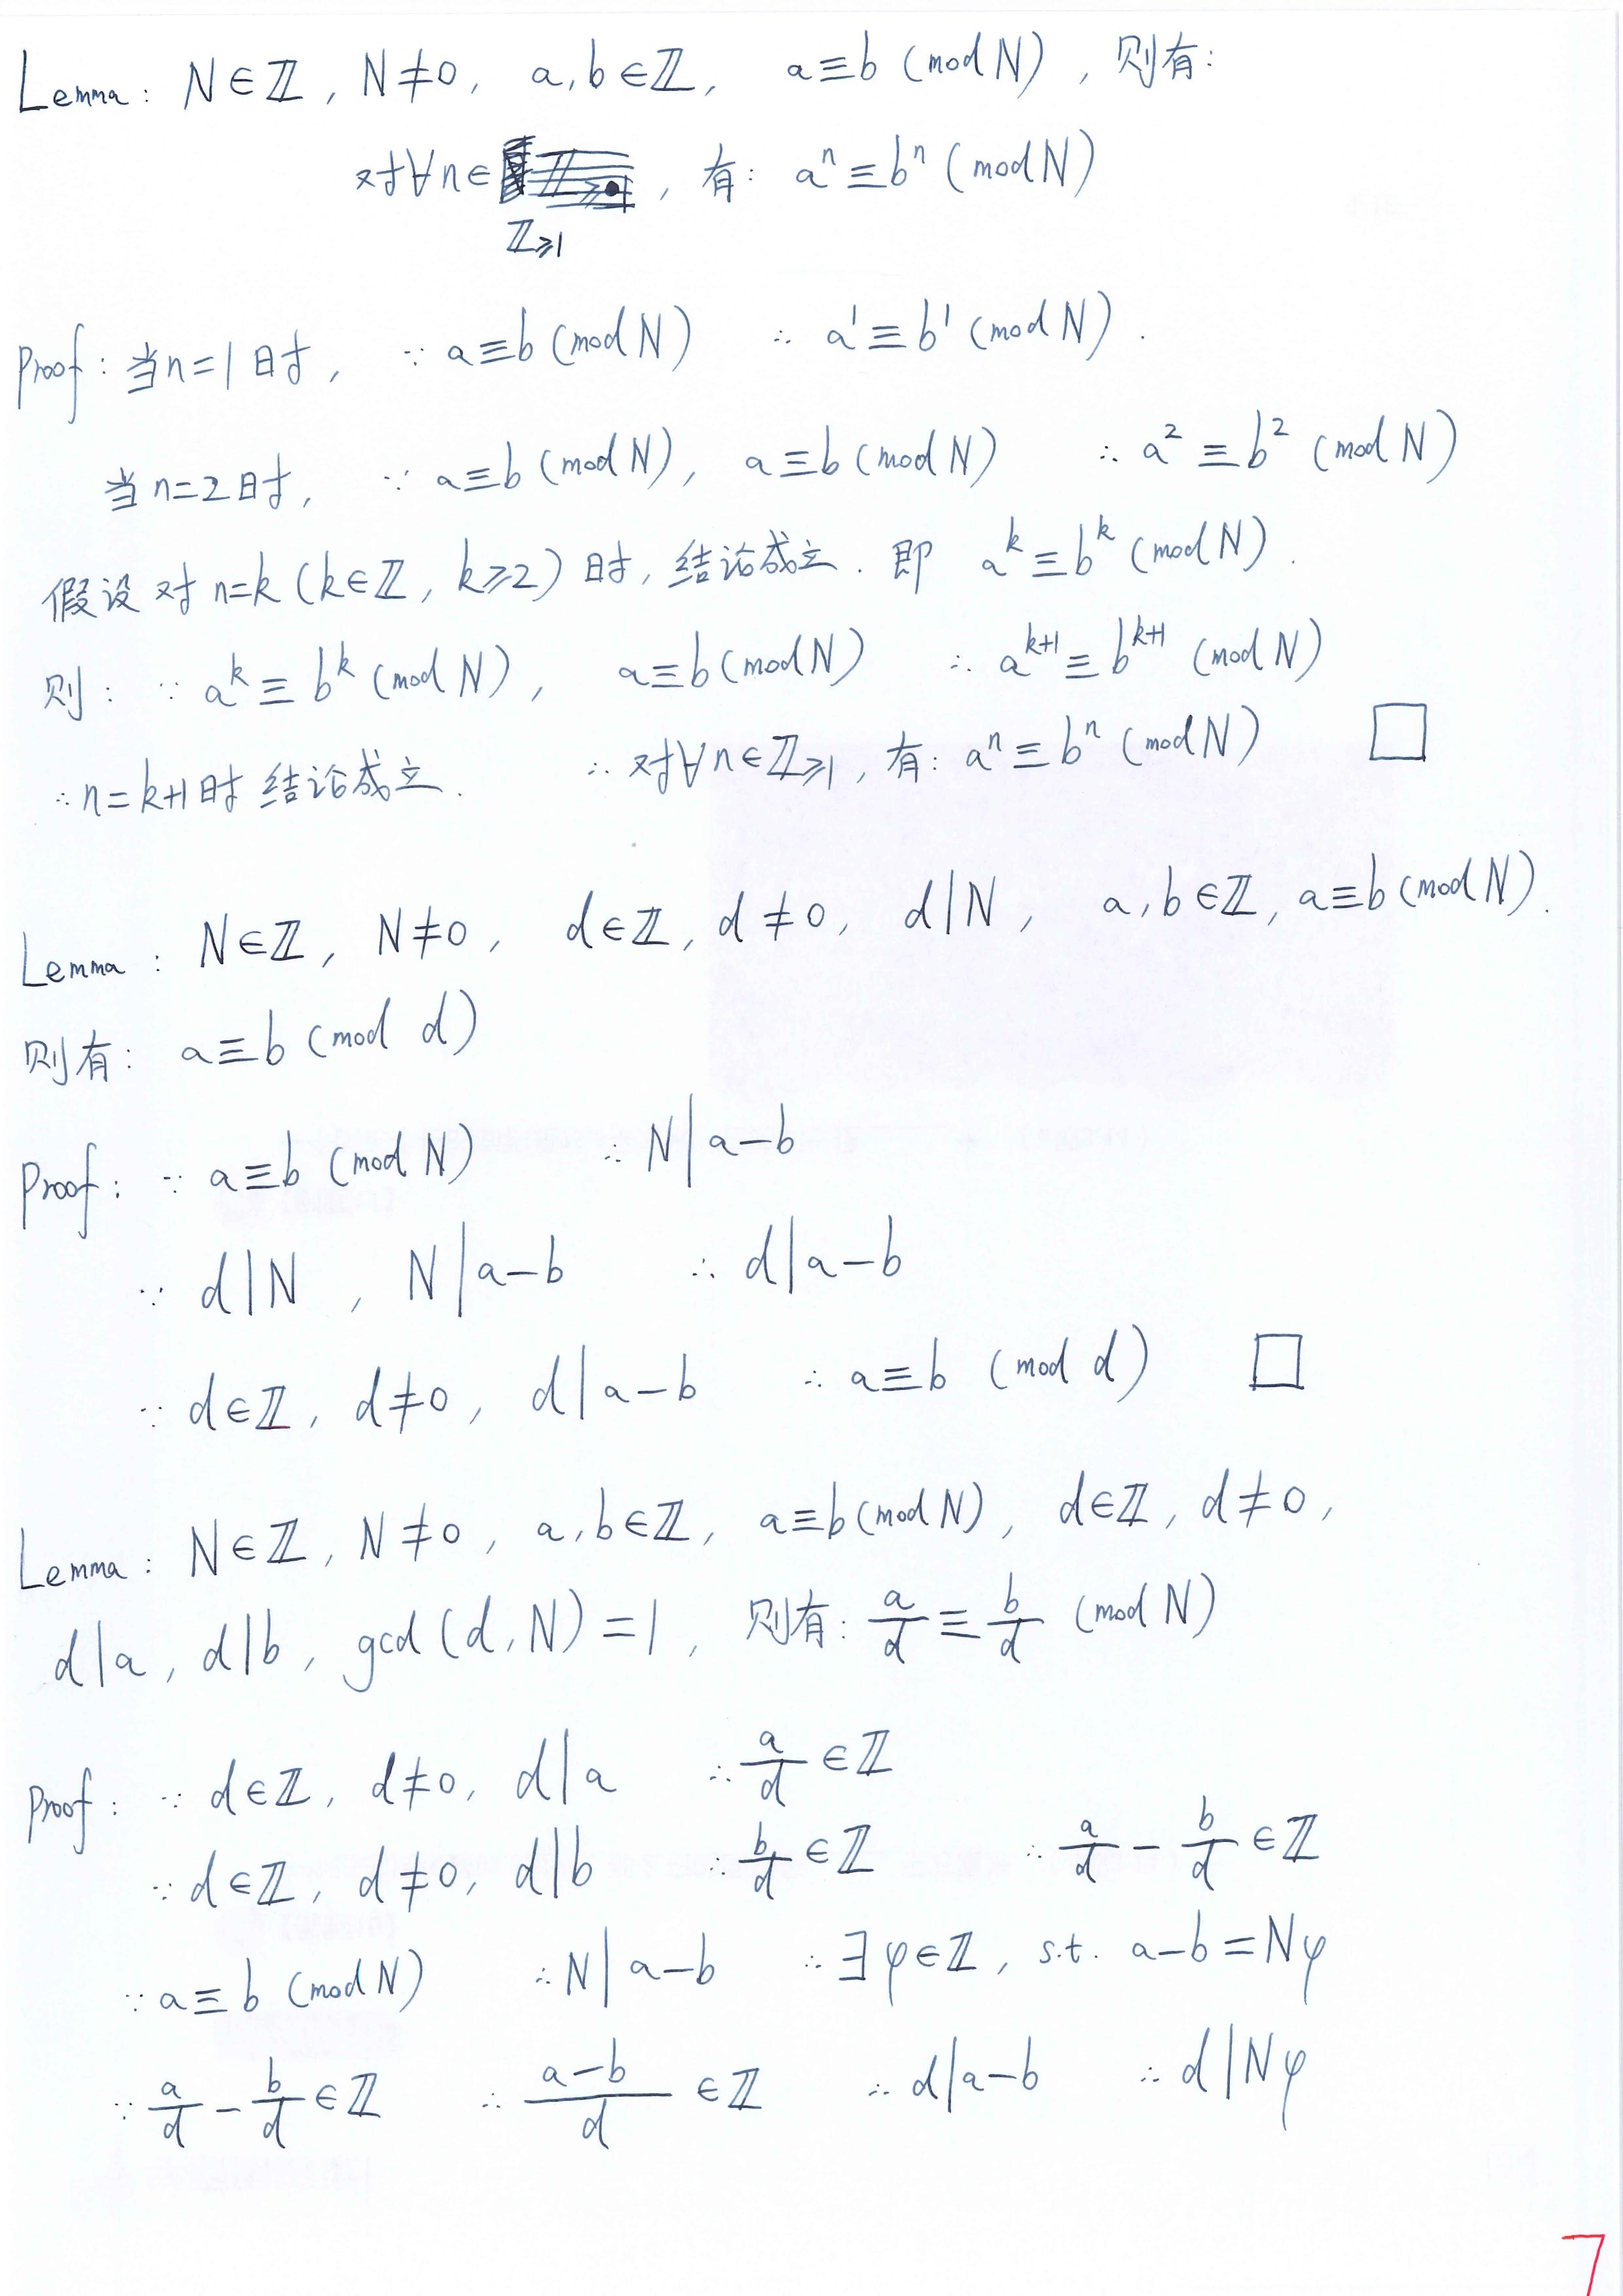 Lemma: N∈ℤ, N≠0, a,b∈ℤ, a≡b (mod N), 则有:
对∀n∈ , 有: aⁿ≡bⁿ (mod N)
ℤ≥1
Proof: 当n=1时, ∵ a≡b (mod N) ∴ a¹≡b¹ (mod N).
当n=2时, ∵ a≡b (mod N), a≡b (mod N) ∴ a²≡b² (mod N)
假设对n=k (k∈ℤ, k≥2) 时, 结论成立. 即 aᵏ≡bᵏ (mod N).
则: ∵ aᵏ≡bᵏ (mod N), a≡b (mod N) ∴ aᵏ⁺¹≡bᵏ⁺¹ (mod N)
∴ n=k+1时结论成立. ∴ 对∀n∈ℤ≥1, 有: aⁿ≡bⁿ (mod N) □
Lemma: N∈ℤ, N≠0, d∈ℤ, d≠0, d|N, a,b∈ℤ, a≡b (mod N).
则有: a≡b (mod d)
Proof: ∵ a≡b (mod N) ∴ N|a-b
∵ d|N, N|a-b ∴ d|a-b
∵ d∈ℤ, d≠0, d|a-b ∴ a≡b (mod d) □
Lemma: N∈ℤ, N≠0, a,b∈ℤ, a≡b (mod N), d∈ℤ, d≠0,
d|a, d|b, gcd(d,N)=1, 则有: a/d≡b/d (mod N)
Proof: ∵ d∈ℤ, d≠0, d|a ∴ a/d∈ℤ
∵ d∈ℤ, d≠0, d|b ∴ b/d∈ℤ ∴ a/d - b/d∈ℤ
∵ a≡b (mod N) ∴ N|a-b ∴ ∃φ∈ℤ, s.t. a-b=Nφ
∵ a/d - b/d∈ℤ ∴ (a-b)/d ∈ℤ ∴ d|a-b ∴ d|Nφ
7